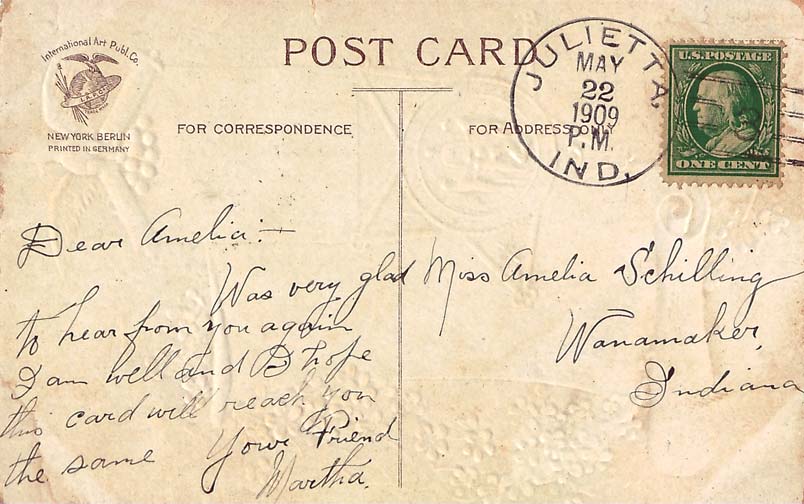 International Art Publ. Co.
NEW YORK BERLIN
PRINTED IN GERMANY
POST CARD
FOR CORRESPONDENCE
FOR ADDRESS ONLY
JULIETTA, IND.
MAY
22
1909
P.M.
U.S. POSTAGE
ONE CENT
Dear Amelia:—
Was very glad
to hear from you again
I am well and I hope
this card will reach you
the same Your Friend
Martha.
Miss Amelia Schilling
Wanamaker,
Indiana